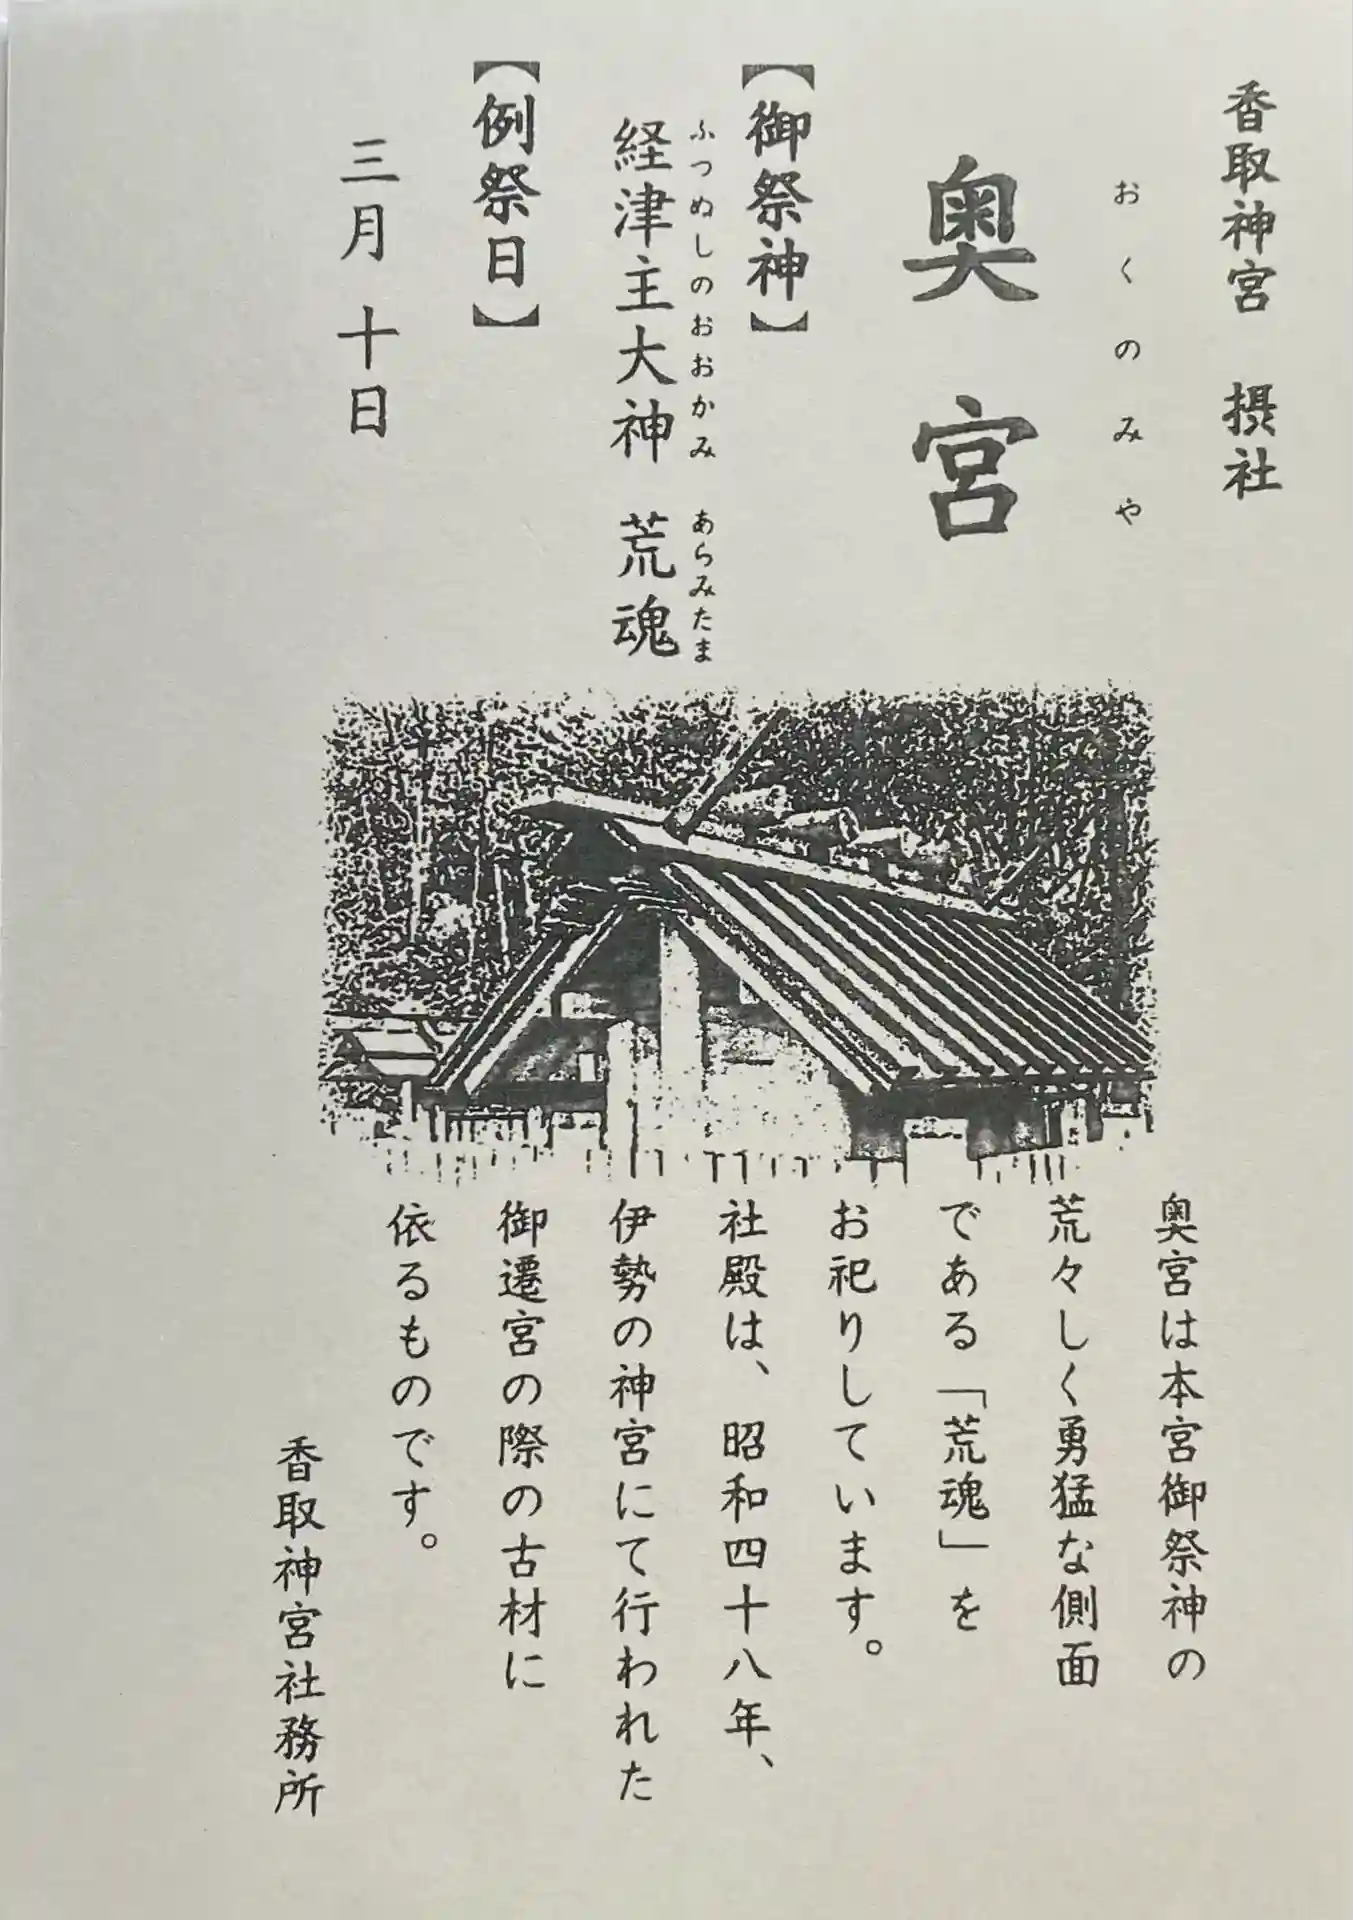 香取神宮　摂社
おくのみや
奥宮
【御祭神】
ふつぬしのおおかみ　あらみたま
経津主大神　荒魂
【例祭日】
三月　十日
奥宮は本宮御祭神の
荒々しく勇猛な側面
である「荒魂」を
お祀りしています。
社殿は、昭和四十八年、
伊勢の神宮にて行われた
御遷宮の際の古材に
依るものです。
香取神宮社務所